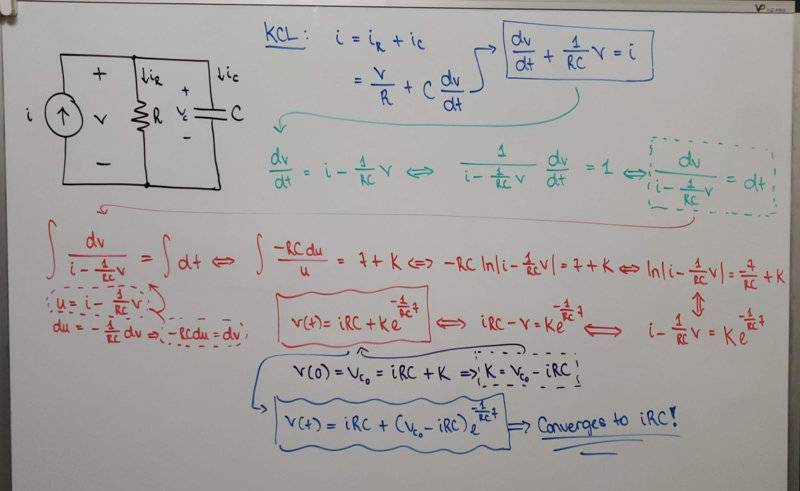 KCL: i = i_R + i_C
= v/R + C dv/dt
dv/dt + 1/RC v = i
i
+
v
−
↓i_R
R
+
v_c
−
↓i_C
C
dv/dt = i − 1/RC v ⇔ 1/(i − 1/RC v) dv/dt = 1 ⇔ dv/(i − 1/RC v) = dt
∫ dv/(i − 1/RC v) = ∫ dt ⇔ ∫ −RC du/u = t + K ⇔ −RC ln|i − 1/RC v| = t + K ⇔ ln|i − 1/RC v| = −t/RC + K
u = i − 1/RC v
du = − 1/RC dv ⇒ −RC du = dv
v(t) = iRC + K e^(−1/RC t) ⇔ iRC − v = K e^(−1/RC t) ⇔ i − 1/RC v = K e^(−1/RC t)
v(0) = V_C0 = iRC + K ⇒ K = V_C0 − iRC
v(t) = iRC + (V_C0 − iRC) e^(−1/RC t) ⇒ Converges to iRC!